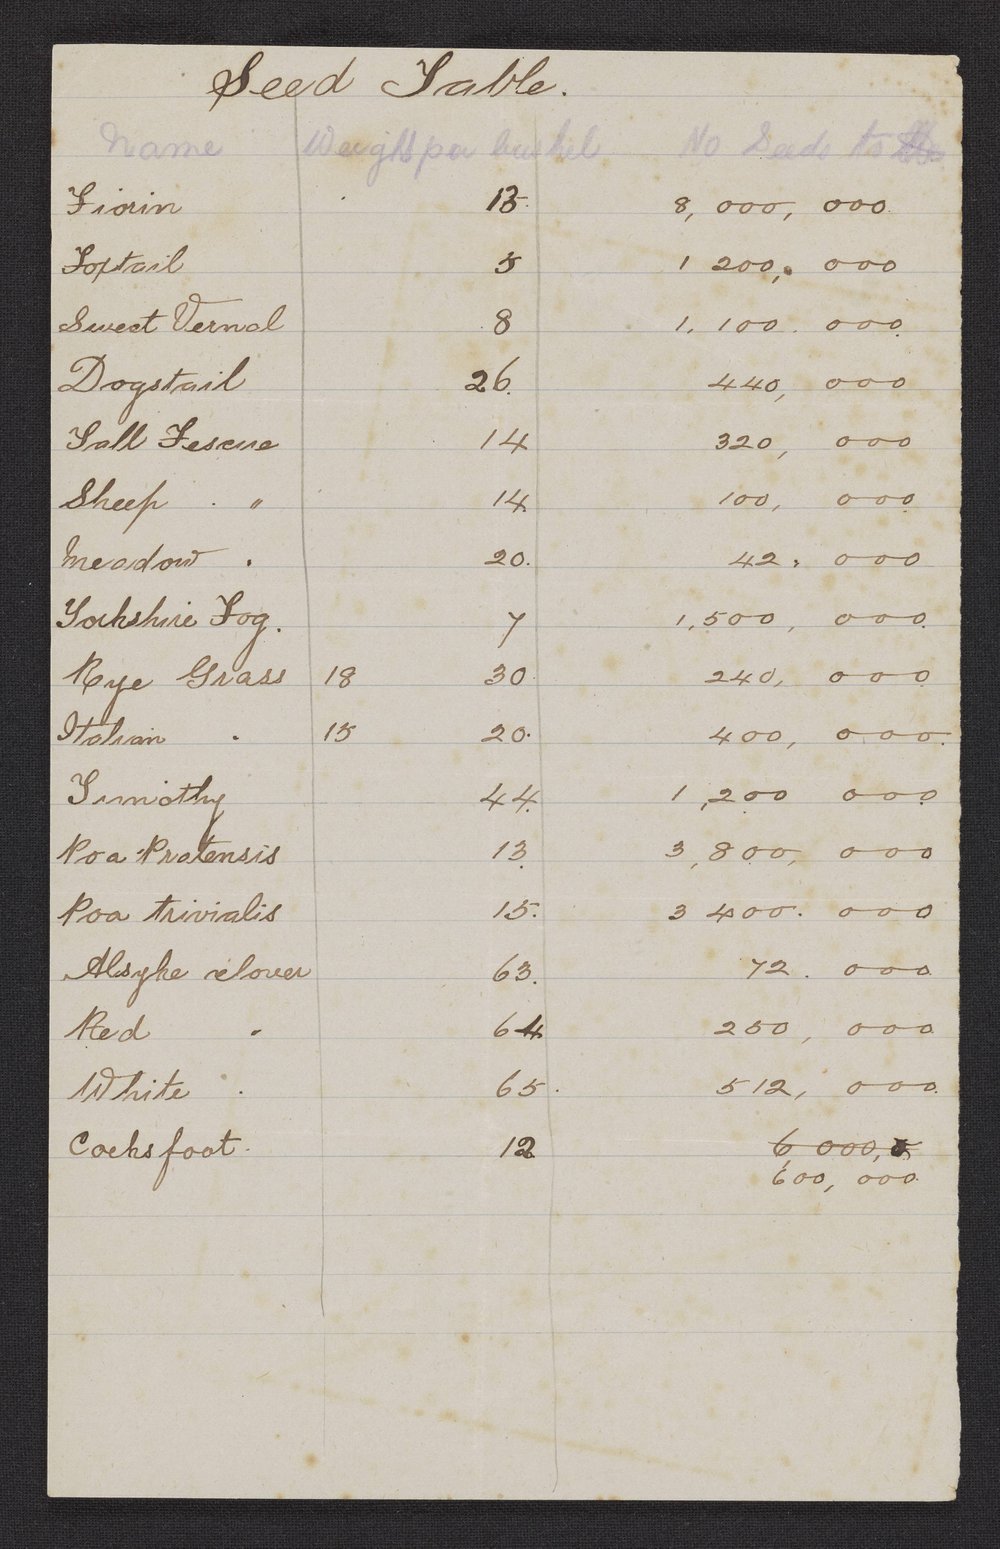 Seed Table.
Name Weight per bushel No Seeds to lb
Fiorin 13. 8,000,000.
Foxtail 5 1 200,000
Sweet Vernal 8 1,100.000.
Dogstail 26. 440,000
Tall Fescue 14 320,000
Sheep " 14. 100,000
Meadow . 20. 42,000
Yorkshire Fog. 7 1,500,000.
Rye Grass 18 30. 240,000
Italian . 15 20. 400,000.
Timothy 44. 1,200 000
Poa Pratensis 13. 3,800,000
Poa trivialis 15. 3 400.000
Alsyke clover 63. 72.000
Red " 64 250,000
White . 65. 512,000.
Cocksfoot. 12 6,000,0
600,000.